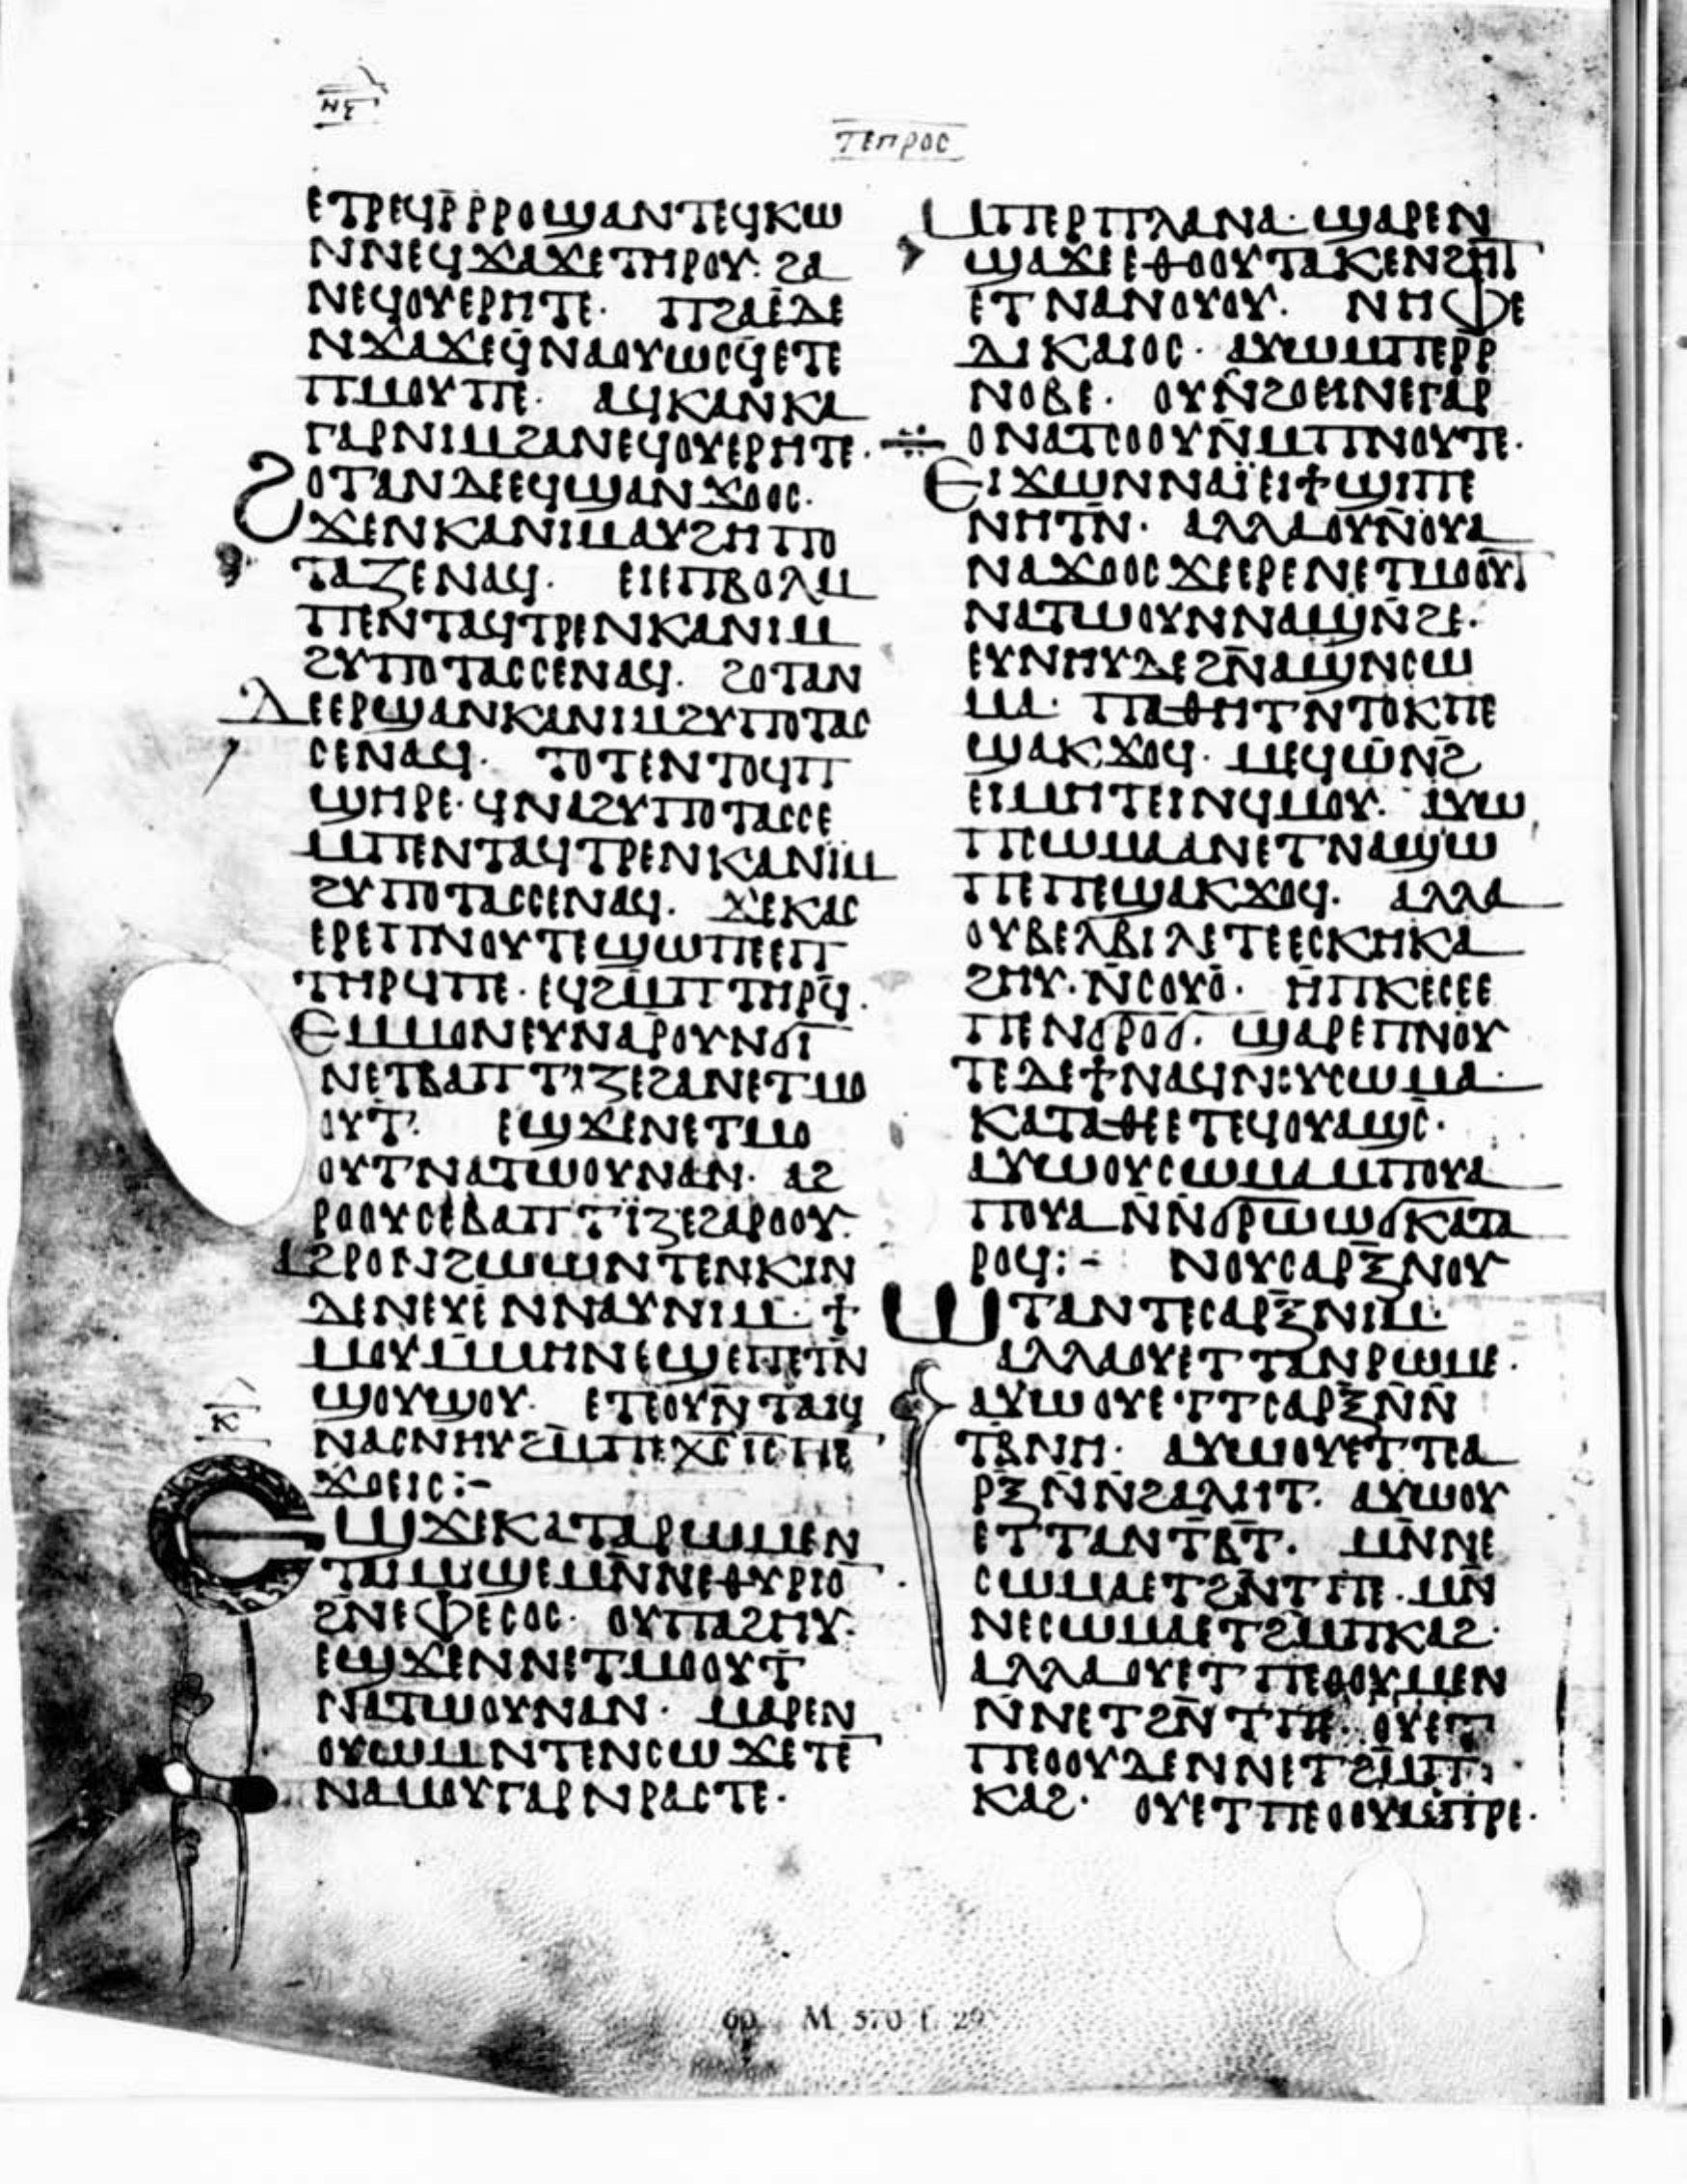 ⲛⲋ
ⲧⲉⲡⲣⲟⲥ
ⲉⲧⲣⲉϥⲣ̄ⲣⲣⲟϣⲁⲛⲧⲉϥⲕⲱ
ⲛⲛⲉϥϫⲁϫⲉⲧⲏⲣⲟⲩ· ϩⲁ
ⲛⲉϥⲟⲩⲉⲣⲏⲧⲉ· ⲡϩⲁⲉⲇⲉ
ⲛϫⲁϫⲉϥ̄ⲛⲁⲟⲩⲱⲥϥⲉⲧⲉ
ⲡⲙⲟⲩⲡⲉ· ⲁϥⲕⲁⲛⲕⲁ
ⲅⲁⲣⲛⲓⲙϩⲁⲛⲉϥⲟⲩⲉⲣⲏⲧⲉ·
ϩⲟⲧⲁⲛⲇⲉⲉϥϣⲁⲛϫⲟⲟⲥ·
ϫⲉⲛⲕⲁⲛⲓⲙⲁⲩϩⲏⲡⲟ
ⲧⲁⲍⲉⲛⲁϥ· ⲉⲓⲉⲡⲃⲟⲗⲙ
ⲡⲉⲛⲧⲁϥⲧⲣⲉⲛⲕⲁⲛⲓⲙ
ϩⲩⲡⲟⲧⲁⲥⲥⲉⲛⲁϥ· ϩⲟⲧⲁⲛ
ⲇⲉⲉⲣϣⲁⲛⲕⲁⲛⲓⲙϩⲩⲡⲟⲧⲁⲥ
ⲥⲉⲛⲁϥ· ⲧⲟⲧⲉⲛⲧⲟϥⲡ
ϣⲏⲣⲉ· ϥⲛⲁϩⲩⲡⲟⲧⲁⲥⲥⲉ
ⲙⲡⲉⲛⲧⲁϥⲧⲣⲉⲛⲕⲁⲛⲓⲙ
ϩⲩⲡⲟⲧⲁⲥⲥⲉⲛⲁϥ· ϫⲉⲕⲁⲥ
ⲉⲣⲉⲡⲛⲟⲩⲧⲉϣⲱⲡⲉⲉⲡ
ⲧⲏⲣϥⲡⲉ· ⲉϥϩⲙ̄ⲡⲧⲏⲣϥ̄·
ⲉⲙⲙⲟⲛⲉⲩⲛⲁⲣⲟⲩⲛϭⲓ
ⲛⲉⲧⲃⲁⲡⲧⲓⲍⲉϩⲁⲛⲉⲧⲙⲟ
ⲟⲩⲧ· ⲉϣϫⲉⲛⲉⲧⲙⲟ
ⲟⲩⲧⲛⲁⲧⲱⲟⲩⲛⲁⲛ· ⲁϩ
ⲣⲟⲟⲩⲥⲉⲃⲁⲡⲧⲓⲍⲉϩⲁⲣⲟⲟⲩ·
ⲁϩⲣⲟⲛϩⲱⲱⲛⲧⲉⲛⲕⲓⲛ
ⲇⲉⲛⲉⲩⲉⲛⲛⲁⲩⲛⲓⲙ· ϯ
ⲙⲟⲩⲙ̄ⲙⲏⲛⲉϣⲉⲡⲉⲧⲛ̄
ϣⲟⲩϣⲟⲩ· ⲉⲧⲉⲟⲩⲛ̄ⲧⲁⲓϥ
ⲛⲁⲥⲛⲏⲩϩⲙ̄ⲡⲉⲭ̄ⲥ̄ⲓ̄ⲥ̄ⲡⲉ
ϫⲟⲉⲓⲥ:-
ⲕ̄
ⲉϣϫⲉⲕⲁⲧⲁⲣⲱⲙⲉⲛ
ⲧⲁⲓⲙⲓϣⲉⲙⲛ̄ⲛⲉⲑⲩⲣⲓⲟ̄
ϩⲛ̄ⲉⲫⲉⲥⲟⲥ· ⲟⲩⲡⲁϩⲏⲩ·
ⲉϣϫⲉⲛⲛⲉⲧⲙⲟⲟⲩⲧ
ⲛⲁⲧⲱⲟⲩⲛⲁⲛ· ⲙⲁⲣⲉⲛ
ⲟⲩⲱⲙⲛⲧⲉⲛⲥⲱϫⲉⲧⲉ̄
ⲛⲁⲙⲟⲩⲅⲁⲣⲛⲣⲁⲥⲧⲉ·
ⲙⲡⲉⲣⲡⲗⲁⲛⲁ· ϣⲁⲣⲉⲛ
ϣⲁϫⲉⲉⲑⲟⲟⲩⲧⲁⲕⲉⲛϩⲏⲧ
ⲉⲧⲛⲁⲛⲟⲩⲟⲩ· ⲛⲏⲫⲉ
ⲇⲓⲕⲁⲓⲟⲥ· ⲁⲩⲱⲙⲡⲉⲣⲣ̄
ⲛⲟⲃⲉ· ⲟⲩⲛ̄ϩⲟⲉⲓⲛⲉⲅⲁⲣ
ⲟⲛⲁⲧⲥⲟⲟⲩⲛ̄ⲙⲡⲛⲟⲩⲧⲉ·
ⲉⲓϫⲱⲛⲛⲁⲓ̈ⲉⲓϯϣⲓⲡⲉ
ⲛⲏⲧⲛ̄· ⲁⲗⲗⲁⲟⲩⲛ̄ⲟⲩⲁ
ⲛⲁϫⲟⲟⲥϫⲉⲉⲣⲉⲛⲉⲧⲙⲟⲟⲩⲧ
ⲛⲁⲧⲱⲟⲩⲛⲛⲁϣⲛ̄ϩⲉ·
ⲉⲩⲛⲏⲩⲇⲉϩⲛ̄ⲁϣⲛⲥⲱ
ⲙⲁ· ⲡⲁⲑⲏⲧⲛⲧⲟⲕⲡⲉ
ϣⲁⲕϫⲟϥ· ⲙⲉϥⲱⲛ̄ϩ
ⲉⲓⲙⲏⲧⲉⲓⲛϥⲙⲟⲩ· ⲁⲩⲱ
ⲡⲥⲱⲙⲁⲁⲛⲉⲧⲛⲁϣⲱ
ⲡⲉⲡⲉϣⲁⲕϫⲟϥ· ⲁⲗⲗⲁ
ⲟⲩⲃⲉⲗⲃⲓⲗⲉⲧⲉⲉⲥⲕⲏⲕⲁ
ϩⲏⲩ· ⲛ̄ⲥⲟⲩⲟ̄· ⲏⲡⲕⲉⲥⲉⲉ
ⲡⲉⲛϭⲣⲟϭ· ϣⲁⲣⲉⲡⲛⲟⲩ
ⲧⲉⲇⲉϯⲛⲁϥⲛⲟⲩⲥⲱⲙⲁ·
ⲕⲁⲧⲁⲑⲉⲉⲧⲉϥⲟⲩⲁϣⲥ̄·
ⲁⲩⲱⲟⲩⲥⲱⲙⲁⲙⲡⲟⲩⲁ
ⲡⲟⲩⲁⲛⲛϭⲣⲱⲱϭⲕⲁⲧⲁ
ⲣⲟϥ:- ⲛⲟⲩⲥⲁⲣⲝⲛⲟⲩ
ⲱⲧⲁⲛⲧⲉⲥⲁⲣⲝⲛⲓⲙ·
ⲁⲗⲗⲁⲟⲩⲉⲧⲧⲁⲛⲣⲱⲙⲉ·
ⲁⲩⲱⲟⲩⲉⲧⲧⲥⲁⲣⲝⲛ̄ⲛ̄
ⲧⲃⲛⲏ· ⲁⲩⲱⲟⲩⲉⲧⲧⲥⲁ
ⲣⲝⲛ̄ⲛ̄ϩⲁⲗⲏⲧ· ⲁⲩⲱⲟⲩ
ⲉⲧⲧⲁⲛⲧⲃ̄ⲧ· ⲙⲛ̄ⲛⲉ
ⲥⲱⲙⲁⲉⲧϩⲛ̄ⲧⲡⲉ· ⲙⲛ̄
ⲛⲉⲥⲱⲙⲁⲉⲧϩⲙ̄ⲡⲕⲁϩ·
ⲁⲗⲗⲁⲟⲩⲉⲧⲡⲉⲟⲟⲩⲙⲉⲛ
ⲛ̄ⲛⲉⲧϩⲛ̄ⲧⲡⲉ· ⲟⲩⲉⲧ
ⲡⲉⲟⲟⲩⲇⲉⲛⲛⲉⲧϩⲙ̄ⲡ
ⲕⲁϩ· ⲟⲩⲉⲧⲡⲉⲟⲟⲩⲙ̄ⲡⲣⲉ·
60 M 570 f. 29